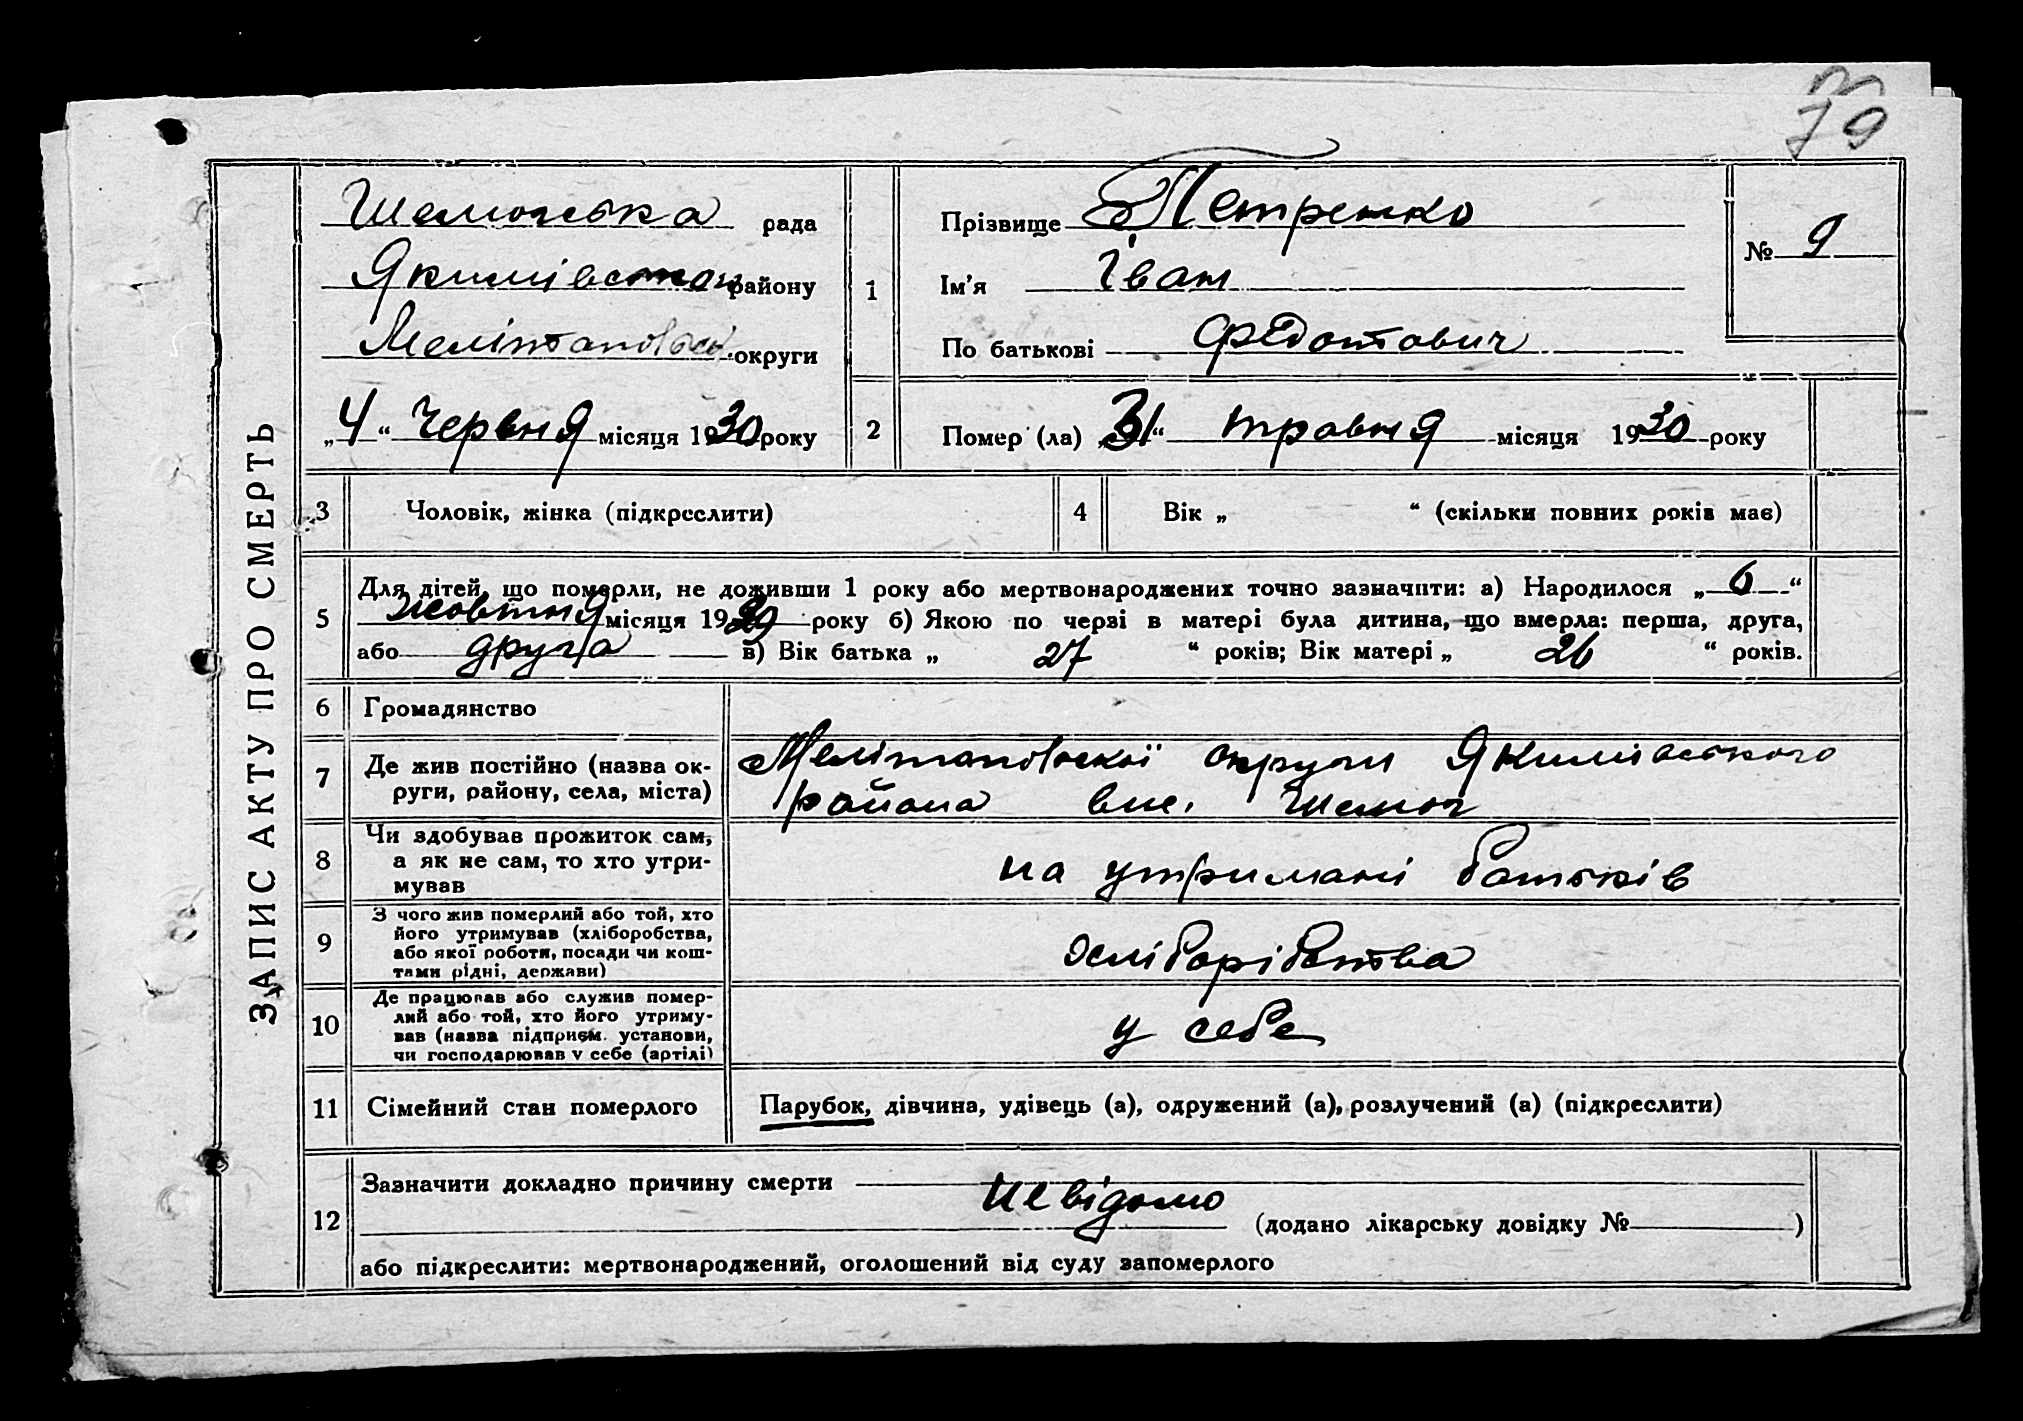 79
ЗАПИС АКТУ ПРО СМЕРТЬ
Шелюгська рада
Якимівськог району
Мелітопольськ. округи
„4“ Червня місяця 1930 року
1
Прізвище Петренко
Ім’я Іван
По батькові Федотович
№ 9
2
Помер (ла) „31“ травня місяця 1930 року
3
Чоловік, жінка (підкреслити)
4
Вік „ “ (скільки повних років має)
5
Для дітей, що померли, не доживши 1 року або мертвонароджених точно зазначити: а) Народилося „6“
жовтня місяця 1929 року б) Якою по черзі в матері була дитина, що вмерла: перша, друга,
або друга в) Вік батька „ 27 “ років; Вік матері „ 26 “ років.
6
Громадянство
7
Де жив постійно (назва ок-
руги, району, села, міста)
округи Якимівського
района
8
Чи здобував прожиток сам,
а як не сам, то хто утри-
мував
на утримані батьків
9
З чого жив померлий або той, хто
його утримував (хліборобства,
або якої роботи, посади чи кош-
тами рідні, держави)
хліборібства
10
Де працював або служив помер-
лий або той, хто його утриму-
вав (назва підприєм. установи,
чи господарював у себе (артілі)
у себе
11
Сімейний стан померлого
Парубок, дівчина, удівець (а), одружений (а), розлучений (а) (підкреслити)
12
Зазначити докладно причину смерти
невідомо
(додано лікарську довідку № )
або підкреслити: мертвонароджений, оголошений від суду запомерлого